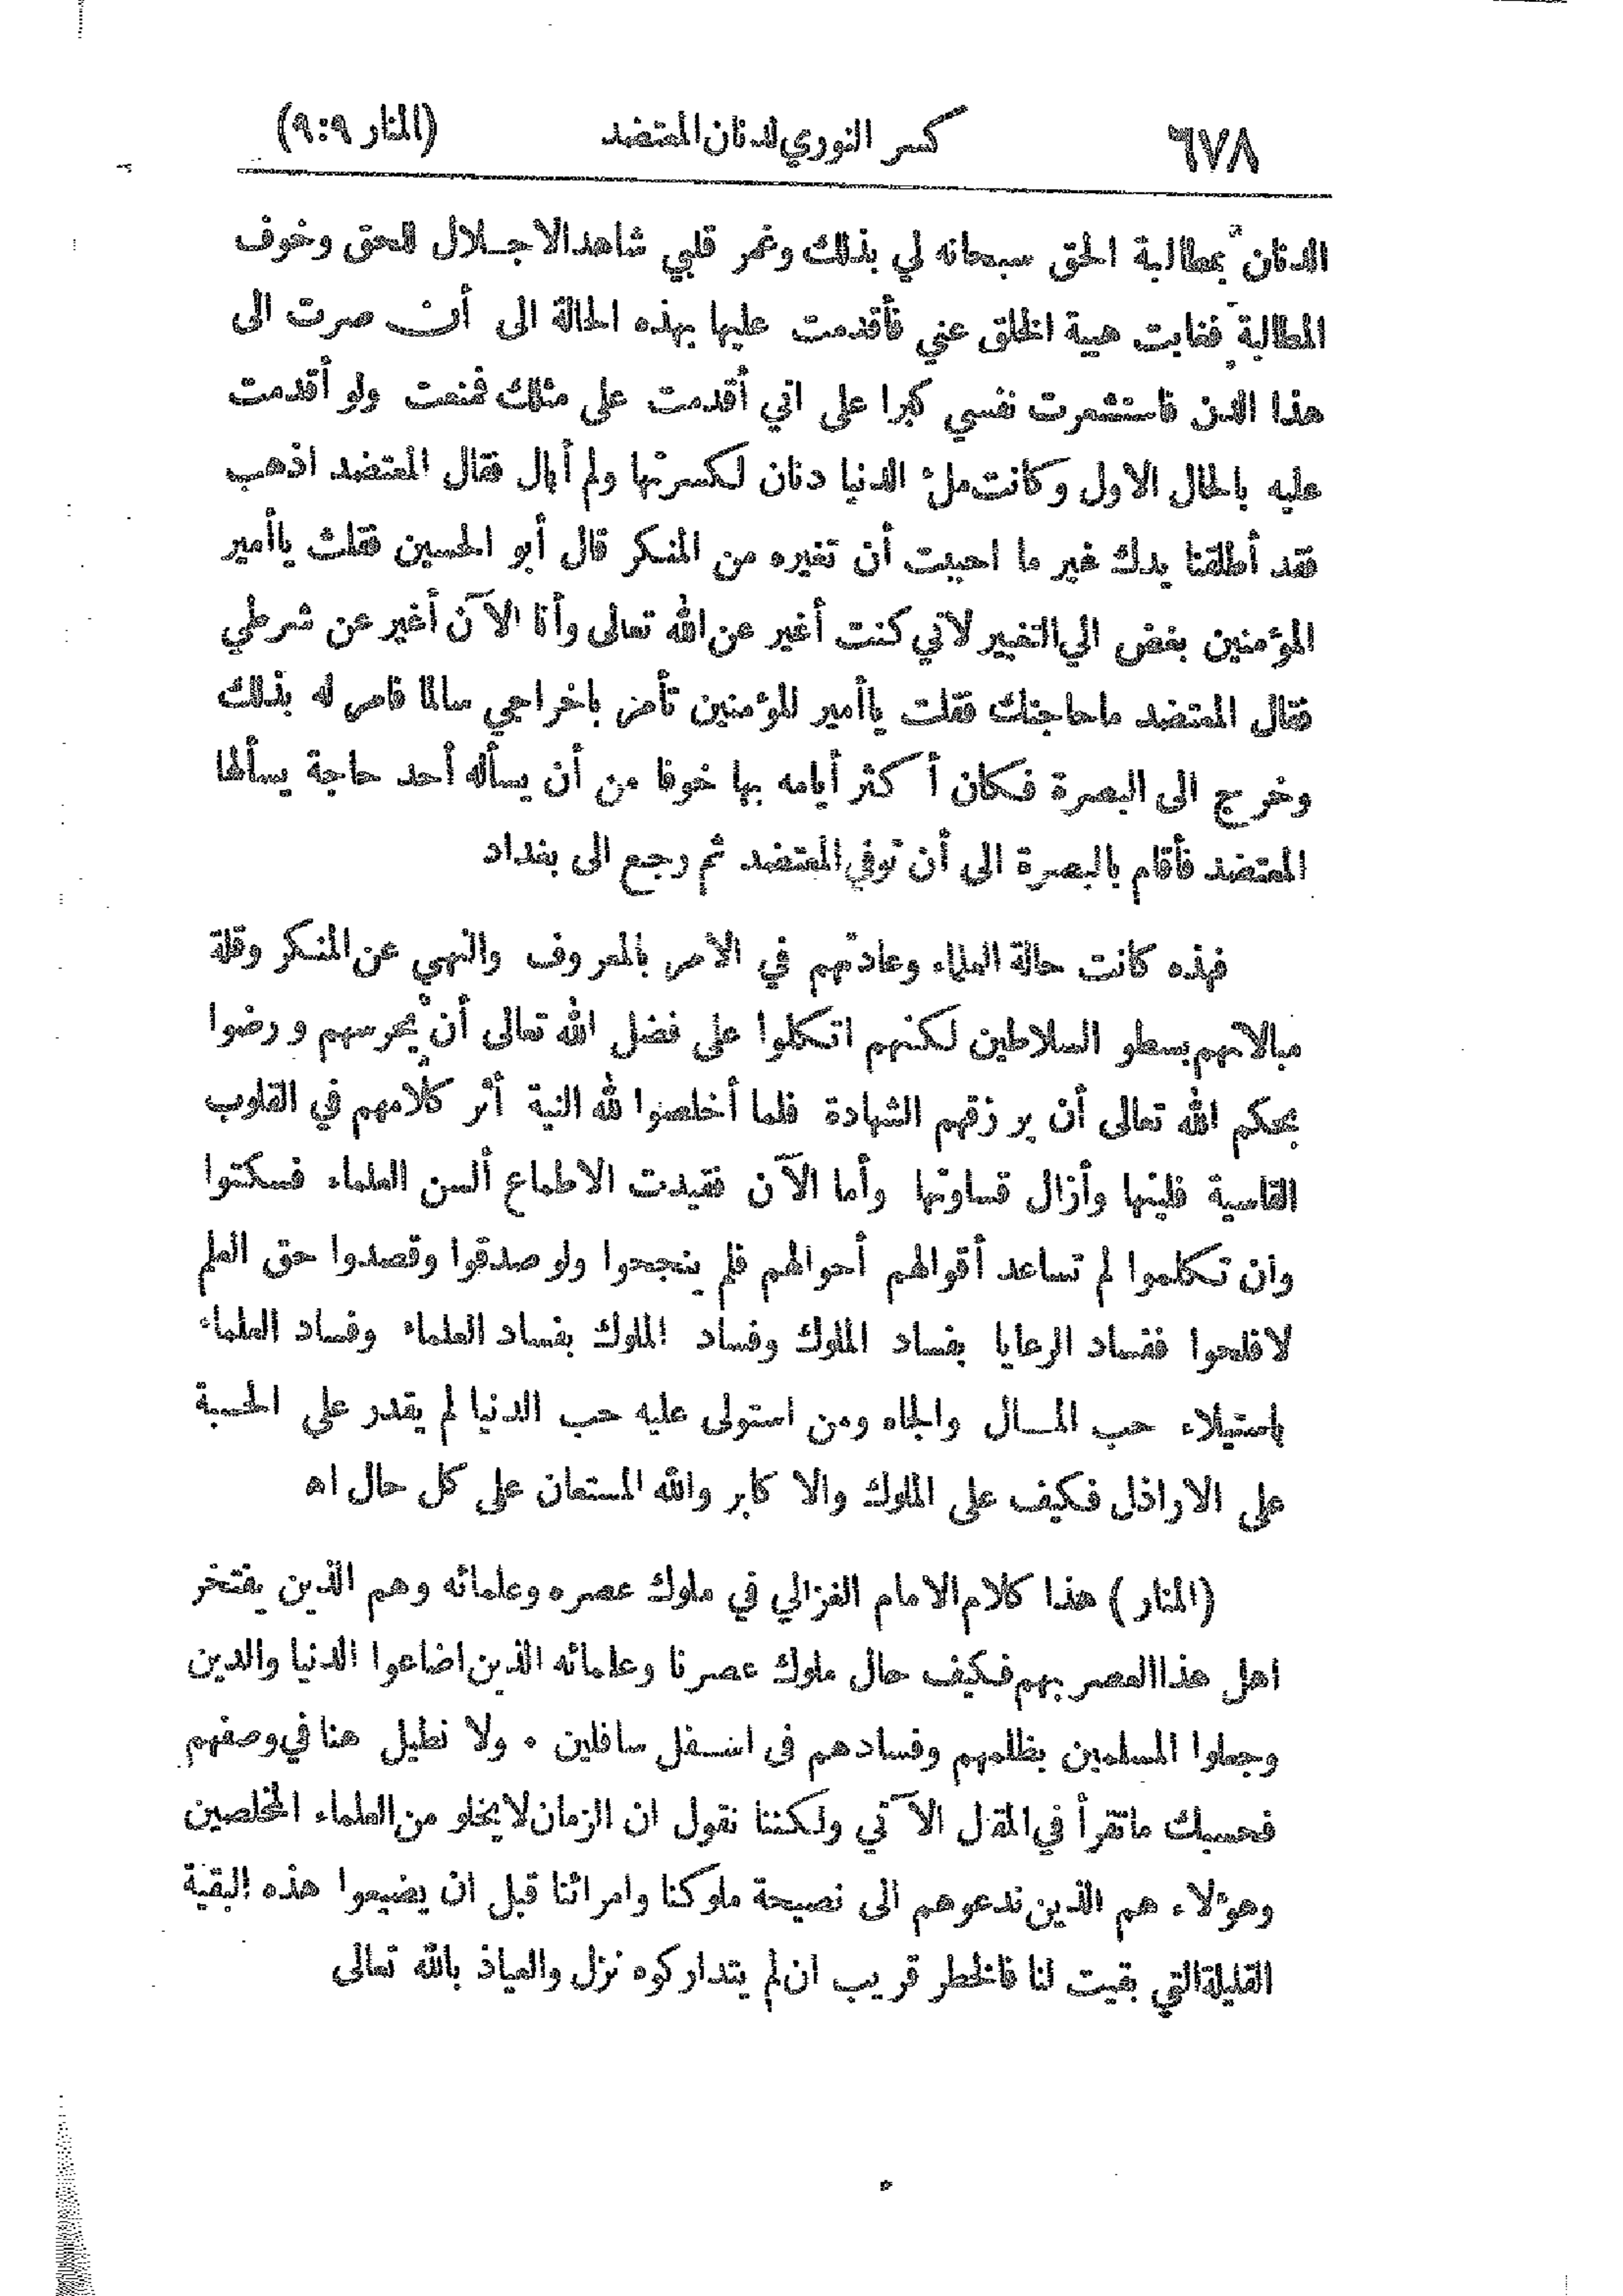 ٦٧٨ كسر النوري لدنان المعتضد (المنار ٩:٩)
الدنان بمطالبة الحق سبحانه لي بذلك وغمر قلبي شاهد الاجلال للحق وخوف
المطالبة فغابت هيبة الخلق عني فأقدمت عليها بهذه الحالة الى أن صرت الى
هذا الدن فاستشعرت نفسي كبرا على اني أقدمت على مثلك فمنعت ولو أقدمت
عليه بالحال الاول وكانت ملء الدنيا دنان لكسرتها ولم أبال فقال المعتضد اذهب
فقد أطلقنا يدك غير ما احببت أن تغيره من المنكر قال أبو الحسين فقلت ياأمير
المؤمنين بغض الي التغيير لاني كنت أغير عن الله تعالى وأنا الآن أغير عن شرطي
فقال المعتضد ماحاجتك فقلت ياأمير المؤمنين تأمر باخراجي سالما فامر له بذلك
وخرج الى البصرة فكان أكثر أيامه بها خوفا من أن يسأله أحد حاجة يسألها
المعتضد فأقام بالبصرة الى أن توفي المعتضد ثم رجع الى بغداد
فهذه كانت حالة العلماء وعادتهم في الامر بالمعروف والنهي عن المنكر وقلة
مبالاتهم بسطو السلاطين لكنهم اتكلوا على فضل الله تعالى أن يحرسهم ورضوا
بحكم الله تعالى أن يرزقهم الشهادة فلما أخلصوا لله النية أثر كلامهم في القلوب
القاسية فلينها وأزال قساوتها وأما الآن فقيدت الاطماع ألسن العلماء فسكتوا
وان تكلموا لم تساعد أقوالهم أحوالهم فلم ينجحوا ولو صدقوا وقصدوا حق العلم
لافلحوا ففساد الرعايا بفساد الملوك وفساد الملوك بفساد العلماء وفساد العلماء
باستيلاء حب المال والجاه ومن استولى عليه حب الدنيا لم يقدر على الحسبة
على الاراذل فكيف على الملوك والاكابر والله المستعان على كل حال اه
(المنار) هذا كلام الامام الغزالي في ملوك عصره وعلمائه وهم الذين يفتخر
اهل هذا العصر بهم فكيف حال ملوك عصرنا وعلمائه الذين اضاعوا الدنيا والدين
وجعلوا المسلمين بظلمهم وفسادهم فى اسفل سافلين . ولا نطيل هنا في وصفهم
فحسبك ماتقرأ في المقال الآتي ولكننا نقول ان الزمان لايخلو من العلماء المخلصين
وهؤلاء هم الذين ندعوهم الى نصيحة ملوكنا وامرائنا قبل ان يضيعوا هذه البقية
القليلة التي بقيت لنا فالخطر قريب ان لم يتداركوه نزل والعياذ بالله تعالى